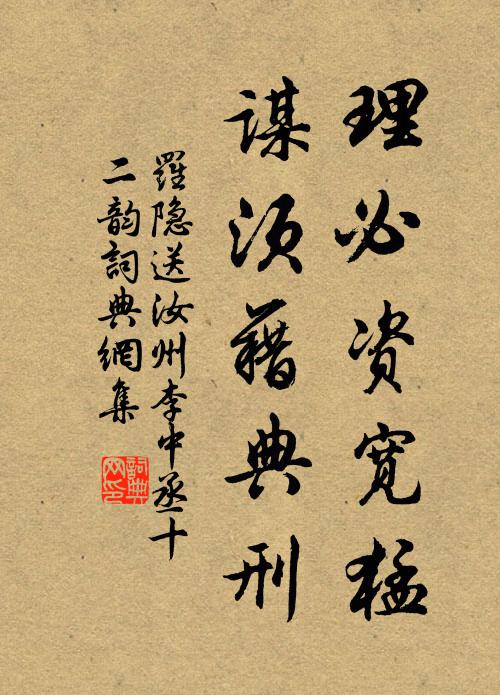 理必资宽猛
谋须藉典刑
羅隐送汝州李中丞十
二韵詞典網集
詞典网印